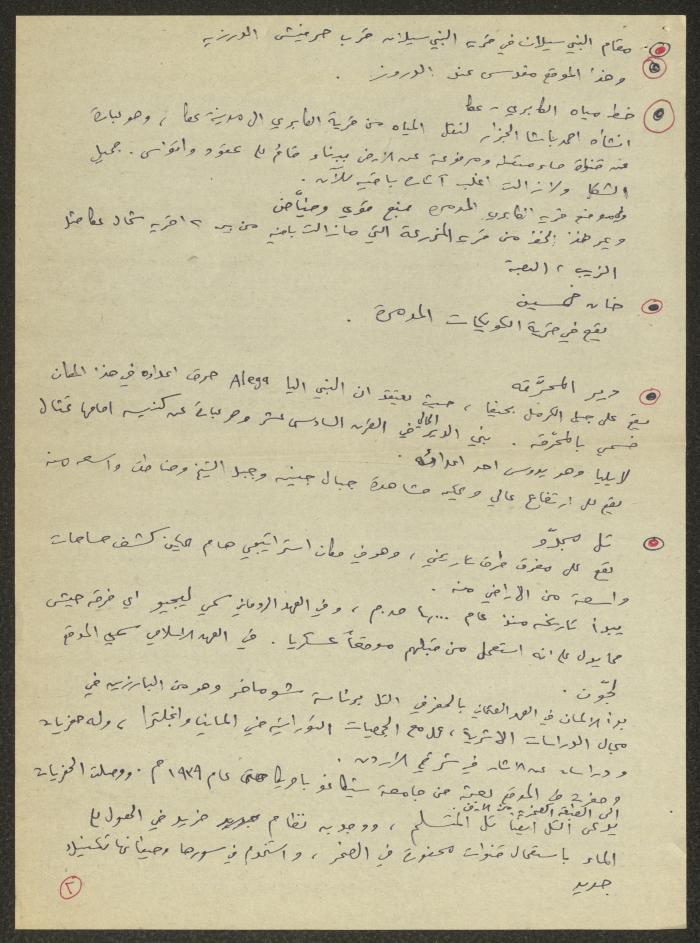 مقام النبي سبلان في قرية النبي سبلان قرب حرفيش الدرزية
وهذا الموقع مقدس عند الدروز .
خط مياه الكابري - عكا
انشأه احمد باشا الجزار لنقل المياه من قرية الكابري الى مدينة عكا ، وهو عبارة
عن قناة ماء متصلة ومرفوعة عن الارض ببناء قائم على عقود واقواس . جميل
الشكل ولا زالت اغلب آثاره باقية للآن .
قرية الكابري المدمرة
ويمر هذا الخط من قرية المزرعة التي ما زالت باقية من بين قرية شمال عكا مثل
الزيب ، البصة
خان
يقع في قرية الكويكات المدمرة .
دير المحرّقه
يقع على جبل الكرمل بحيفا ، حيث يعتقد ان النبي اليا Alega حرق اعداءه في هذا المكان
فسمي بالمحرّقة . بني الدير الحالي في القرن السادس عشر وهو عبارة عن كنيسه امامها تمثال
لايليا وهو يدوس احد اعدائه .
يقع على ارتفاع عالي ويمكن مشاهدة جبال جنين وجبل الشيخ ومناطق واسعه منه
تل مجدّو
يقع على مفرق طرق تاريخي ، وهو في مكان استراتيجي هام يمكن كشف مساحات
واسعة من الاراضي منه .
يبدأ تاريخه منذ عام ق.م ، وفي العهد الروماني سمي ليجيو اي فرقة جيش
مما يدل على انه استعمل من قبلهم موقعاً عسكريا . في العهد الاسلامي سمي الموقع
لجّون .
بدأ الالمان في العهد العثماني بالحفر في التل برئاسة شوماخر وهو من البارزين في
مجال الدراسات الاثرية ، عمل مع الجمعيات التوراتية في المانيا وانجلترا ، وله حفريات
ودراسات عن الآثار في شرقي الاردن .
وحفرت في الموقع بعثة من جامعة شيكاغو باميركا حتى عام ١٩٣٩ م . ووصلت الحفريات
الى الطبقة الصخرية من الارض .
يدعى التل ايضاً تل المتسلم ، ووجد به نظام فريد في الحصول على
الماء باستعمال قنوات محفورة في الصخر ، واستخدم في سورها
جديد
٢